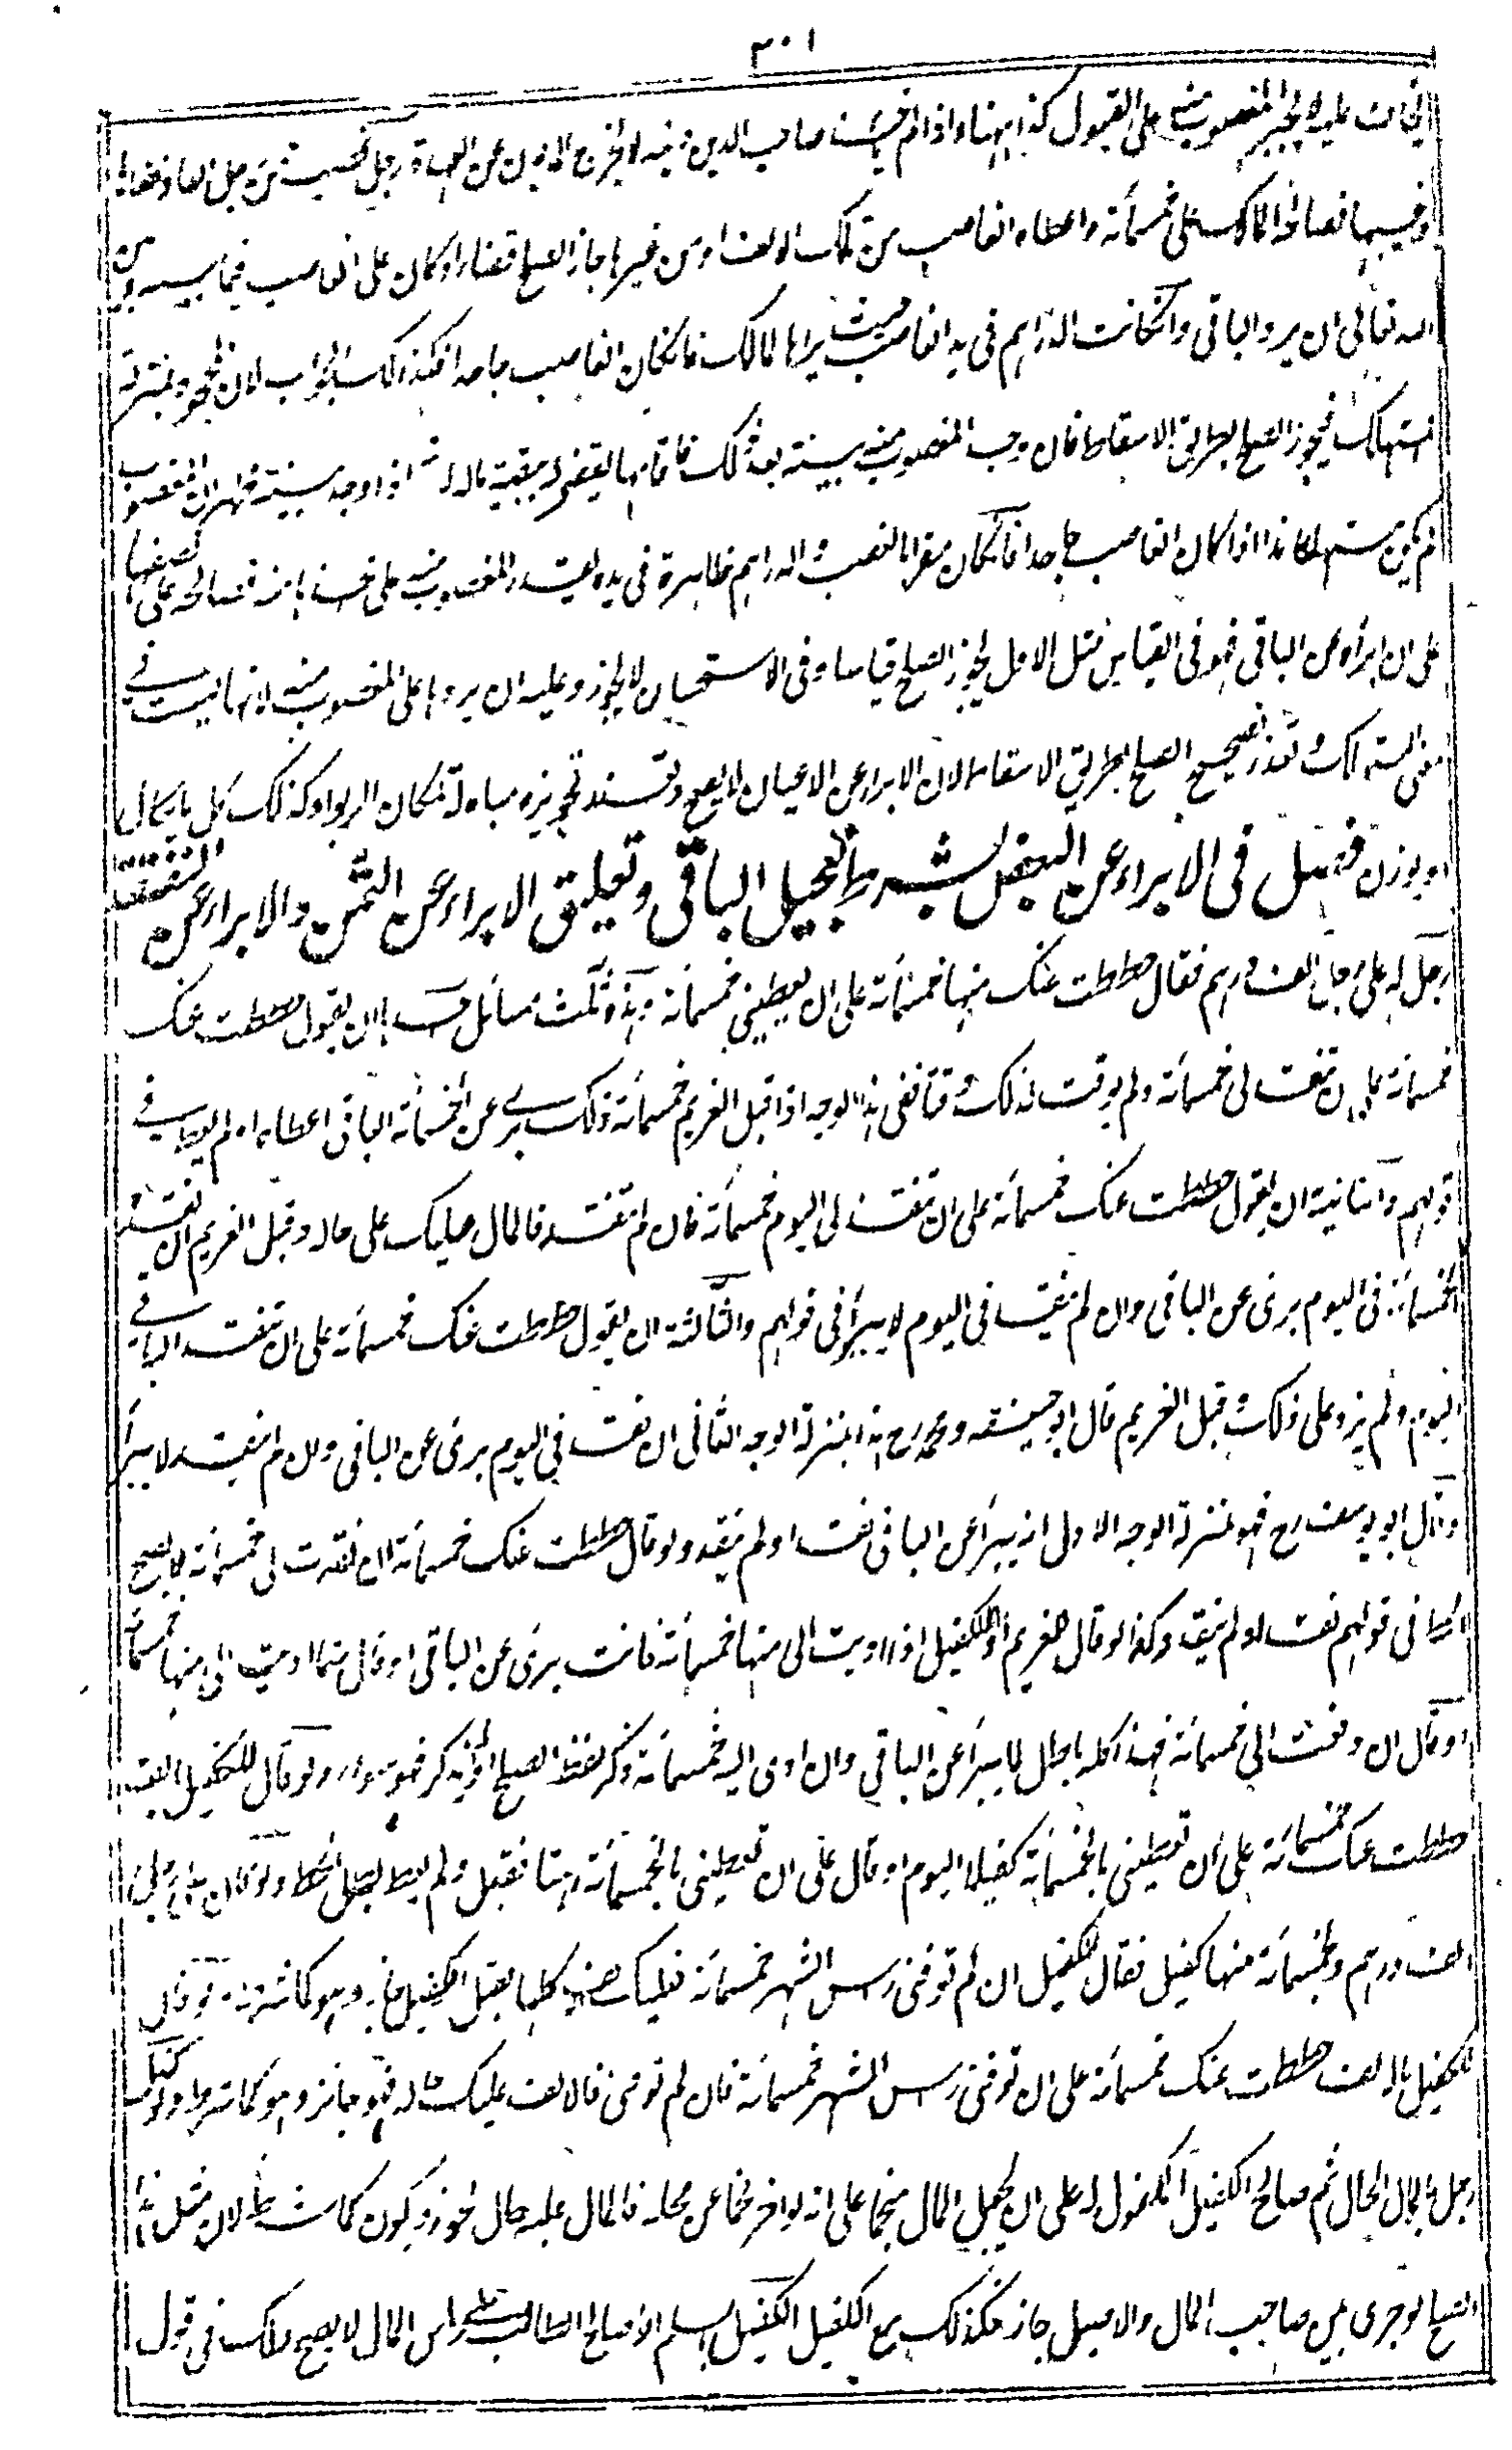 ٣٠١
عليه لا يجبر المغصوب منه على القبول كذا ههنا واذا لم صاحب الدين لا يخرج المديون عن العهدة رجل غصب من رجل الفا
فصالحه المالك على خمسمائة واعطاه الغاصب من تلك الالف او من غيرها جاز الصلح قضاء وكان على الغاصب فيما بينه وبين
الله تعالى ان يرد الباقي وان كانت الدراهم في يد الغاصب حيث يراها المالك فان كان الغاصب جاحدا فكذلك الجواب لان الجحود بمنزلة
استهلاك فيجوز الصلح بطريق الاسقاط فان وجد المغصوب منه بينة بعد ذلك فاقامها يقضى له ببقية ماله لانه اذا وجد بينة ظهر ان المغصوب
لم يكن مستهلكا هذا اذا كان الغاصب جاحدا فان كان مقرا بالغصب والدراهم ظاهرة في يده المغصوب منه على اخذها منه فصالحه على نصفها
على ان ابرأه عن الباقي فهو في القياس مثل الاول يجوز الصلح قياسا وفي الاستحسان لا يجوز وعليه ان يردها على المغصوب منه لانها ليست في
معنى المستهلك وتعذر تصحيح الصلح بطريق الاسقاط لان الابراء عن الاعيان لا يصح تجويزه مبادلة لمكان الربوا وكذلك كل ما يكال
او يوزن فصل في الابراء عن البعض بشرط تعجيل الباقي وتعليق الابراء عن الثمن والابراء عن
رجل له على رجل الف درهم فقال حططت عنك منها خمسمائة على ان تعطيني خمسمائة وهذه ثلث مسائل احدها ان يقول حططت عنك
خمسمائة على ان تنقد لي خمسمائة ولم يوقت لذلك وقتا ففي هذا الوجه اذا قبل الغريم خمسمائة ذلك بري عن الخمسمائة الباقي اعطاه او لم يعط في
قولهم والثانية ان يقول حططت عنك خمسمائة على ان تنقد لي اليوم خمسمائة فان لم تنقد فالمال عليك على حاله وقبل الغريم ان نقد
الخمسمائة في اليوم برئ عن الباقي وان لم ينقد في اليوم لا يبرأ في قولهم والثالثة ان يقول حططت عنك خمسمائة على ان تنقد الباقي
اليوم ولم يزد على ذلك وقبل الغريم قال ابو حنيفة ومحمد رح هذا بمنزلة الوجه الثاني ان نقد في اليوم برئ عن الباقي وان لم ينقد لا يبرأ
وقال ابو يوسف رح فهو بمنزلة الوجه الاول انه يبرأ عن الباقي نقد او لم ينقد ولو قال حططت عنك خمسمائة ان نقدت الي خمسمائة لا يصح
في قولهم نقد او لم ينقد وكذا لو قال للغريم او للكفيل اذا اديت الي منها خمسمائة فانت برئ عن الباقي او قال متى ما اديت الي منها خمسمائة
او قال ان دفعت الي خمسمائة فهذا كله باطل لا يبرأ عن الباقي وان ادى اليه خمسمائة ذكر لفظ الصلح او لم يذكر فهو سواء ولو قال للكفيل
حططت عنك خمسمائة على ان تعطيني بالخمسمائة كفيلا اليوم او قال على ان تعطيني بالخمسمائة رهنا فقبل ولم يعط بطل الحط ولو كان
الف درهم وبخمسمائة منها كفيل فقال للكفيل ان لم توفني رأس الشهر خمسمائة فعليك كلها فقبل الكفيل جاز وهو كما شرط ولو قال
للكفيل بالالف حططت عنك خمسمائة على ان توفني رأس الشهر خمسمائة فان لم توفني فالالف عليك فهو جائز وهو كما شرط ولو كفل
رجل بالمال الحال ثم صالح الكفيل المكفول له على ان يجعل المال منجما على انه لو اخر نجما عن محله فالمال عليه حال يجوز ويكون كما شرط لان مثل هذا
الصلح لو جرى بين صاحب المال والاصيل جاز فكذلك مع الكفيل الكفيل بالسلم اذا صالح الطالب على رأس المال لا يصح ذلك في قول